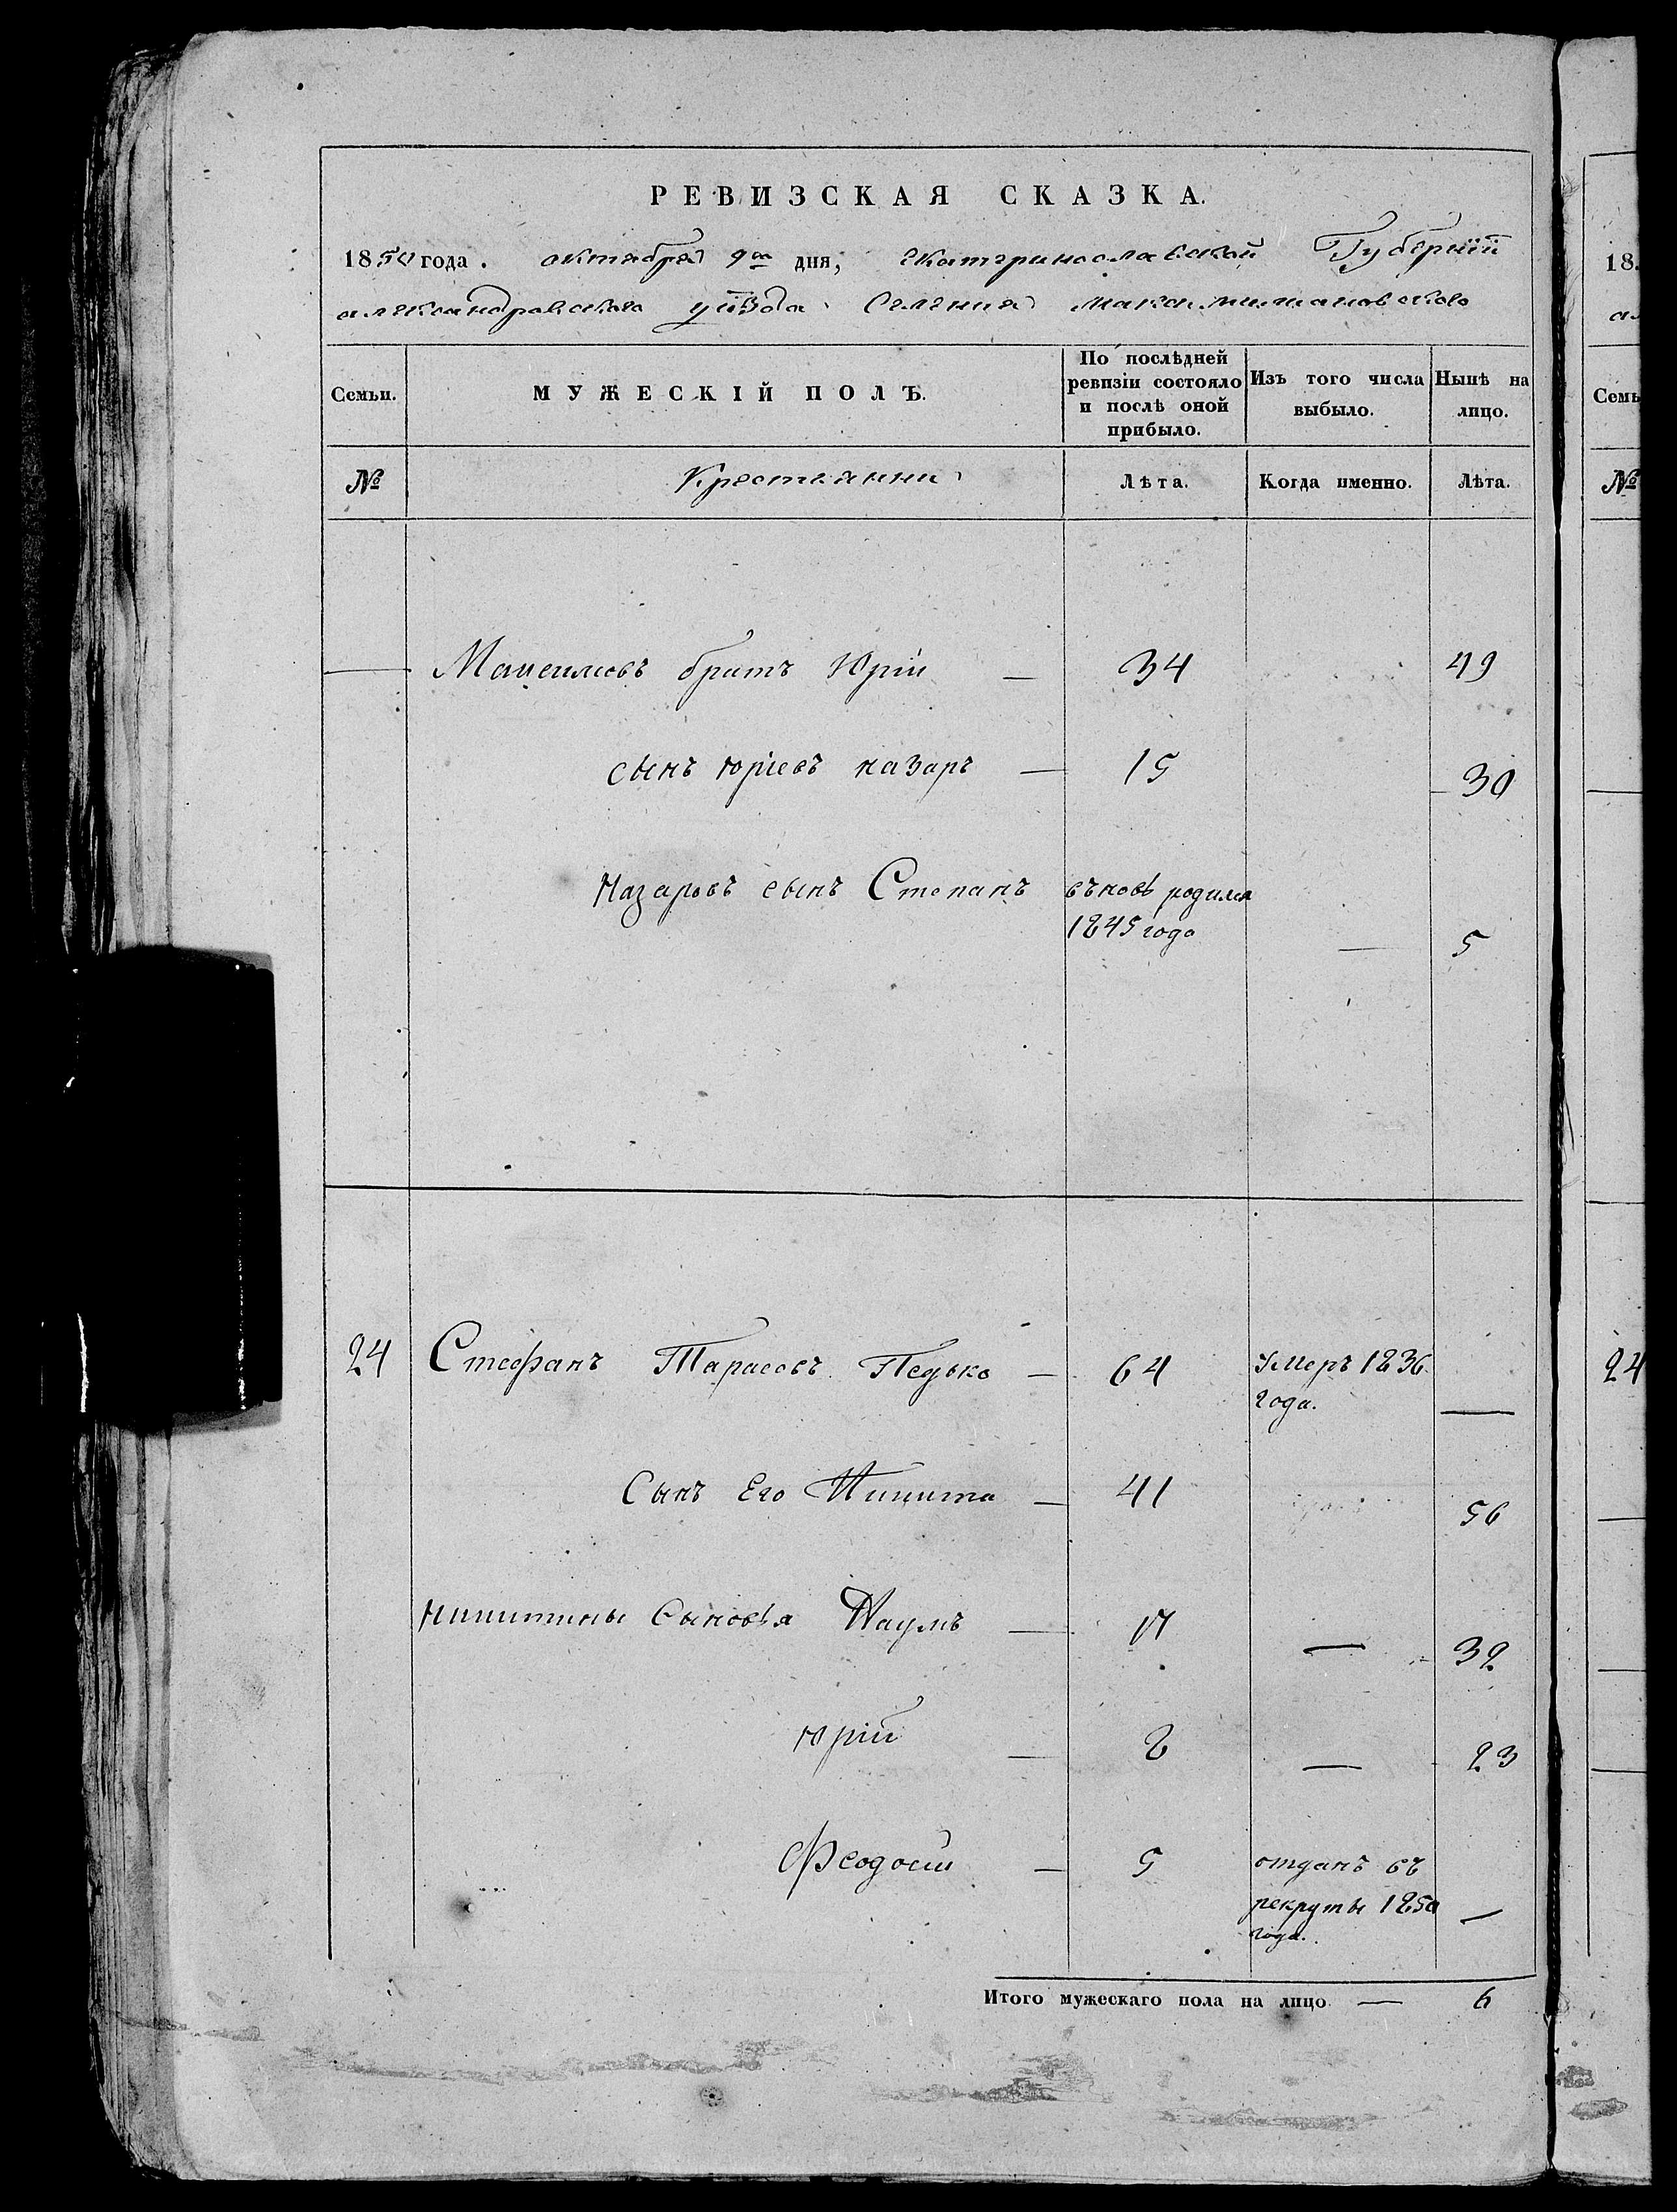 РЕВИЗСКАЯ СКАЗКА.
1850 года. октября 9го дня, Екатериносласкои Губернии
александровского уѣзда Селения максимилиановского
Семьи. МУЖЕСКІЙ ПОЛЪ. По послѣдней ревизіи состояло и послѣ оной прибыло. Изъ того числа выбыло. Нынѣ на лицо.
№ Крестьянин Лѣта. Когда именно. Лѣта.
Максимовъ братъ Юрiй — 34 49
сынъ юрiевъ назаръ — 15 30
Назаровъ сынъ Степанъ въновѣ родился
1845 года — 5
24 Стефанъ Тарасовъ Педько — 64 Умеръ 1836
года. —
Сынъ Его Никита — 41 56
никитины Сыновья Наумъ — 17 — 32
юрiй — 8 — 23
Феодосiй — 5 отданъ въ
рекруты 1850 —
года.
Итого мужескаго пола на лицо — 6
18.
Семь
№
24